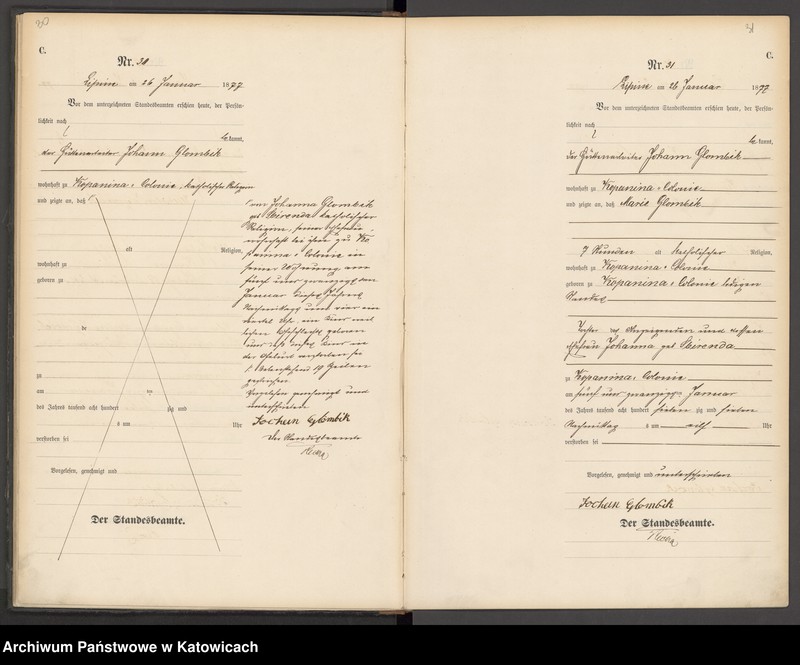 30
C.
Nr. 30
Lipine am 26 Januar 1877
Vor dem unterzeichneten Standesbeamten erschien heute, der Persön-
lichkeit nach
be kannt,
der Hüttenarbeiter Johann Glombik
wohnhaft zu Kopanina-Colonie, katholischer Religion
und zeigte an, daß
von Johanna Glombik
geb Skirenda katholischer
Religion, seiner Ehefrau
wohnhaft bei ihm zu Ko
panina-Colonie in
seiner Wohnung am
fünf und zwanzigsten
Januar dieses Jahres
Nachmittags um vier ein
viertel Uhr, ein Kind
lichen Geschlechts geboren
und daß dieses Kind in
der Geburt verstorben sei
Vorgelesen genehmigt und
unterschrieben
Jochan Glombik
Der Standesbeamte
alt Religion,
wohnhaft zu
geboren zu
de
zu
am ten
des Jahres tausend acht hundert zig und
s am Uhr
verstorben sei
Vorgelesen, genehmigt und
Der Standesbeamte.
31
C.
Nr. 31
Lipine am 26 Januar 1877
Vor dem unterzeichneten Standesbeamten erschien heute, der Persön-
lichkeit nach
be kannt,
der Hüttenarbeiter Johann Glombik
wohnhaft zu Kopanina-Colonie
und zeigte an, daß Marie Glombik
7 Stunden alt katholischer Religion,
wohnhaft zu Kopanina-Colonie
geboren zu Kopanina-Colonie ledigen
Standes
Tochter des Anzeigenden und dessen
Ehefrau Johanna geb Skirenda
zu Kopanina-Colonie
am fünf und zwanzigsten Januar
des Jahres tausend acht hundert sieben zig und sieben
Nachmittag s um elf Uhr
verstorben sei
Vorgelesen, genehmigt und unterschrieben
Jochan Glombik
Der Standesbeamte.
Archiwum Państwowe w Katowicach